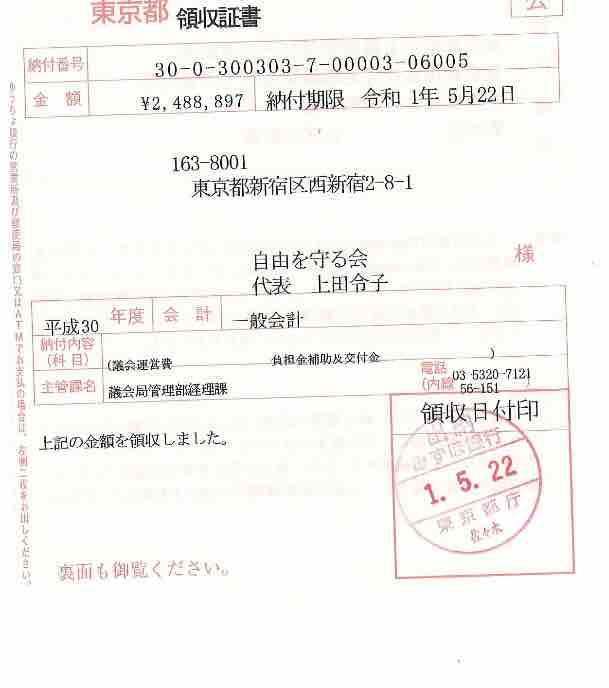 東京都 領収証書
公
納付番号 30-0-300303-7-00003-06005
金額 ¥2,488,897 納付期限 令和 1年 5月22日
163-8001
東京都新宿区西新宿2-8-1
自由を守る会 様
代表 上田令子
平成30 年度 会計 一般会計
納付内容(科目) (議会運営費 負担金補助及交付金 )
主管課名 議会局管理部経理課 電話(内線) 03-5320-7121 56-151
領収日付印
上記の金額を領収しました。
みずほ銀行
1.5.22
東京都庁
佐々木
裏面も御覧ください。
ゆうちょ銀行の営業所及び郵便局の窓口又はATMでお支払の場合は、左側二枚をお出しください。